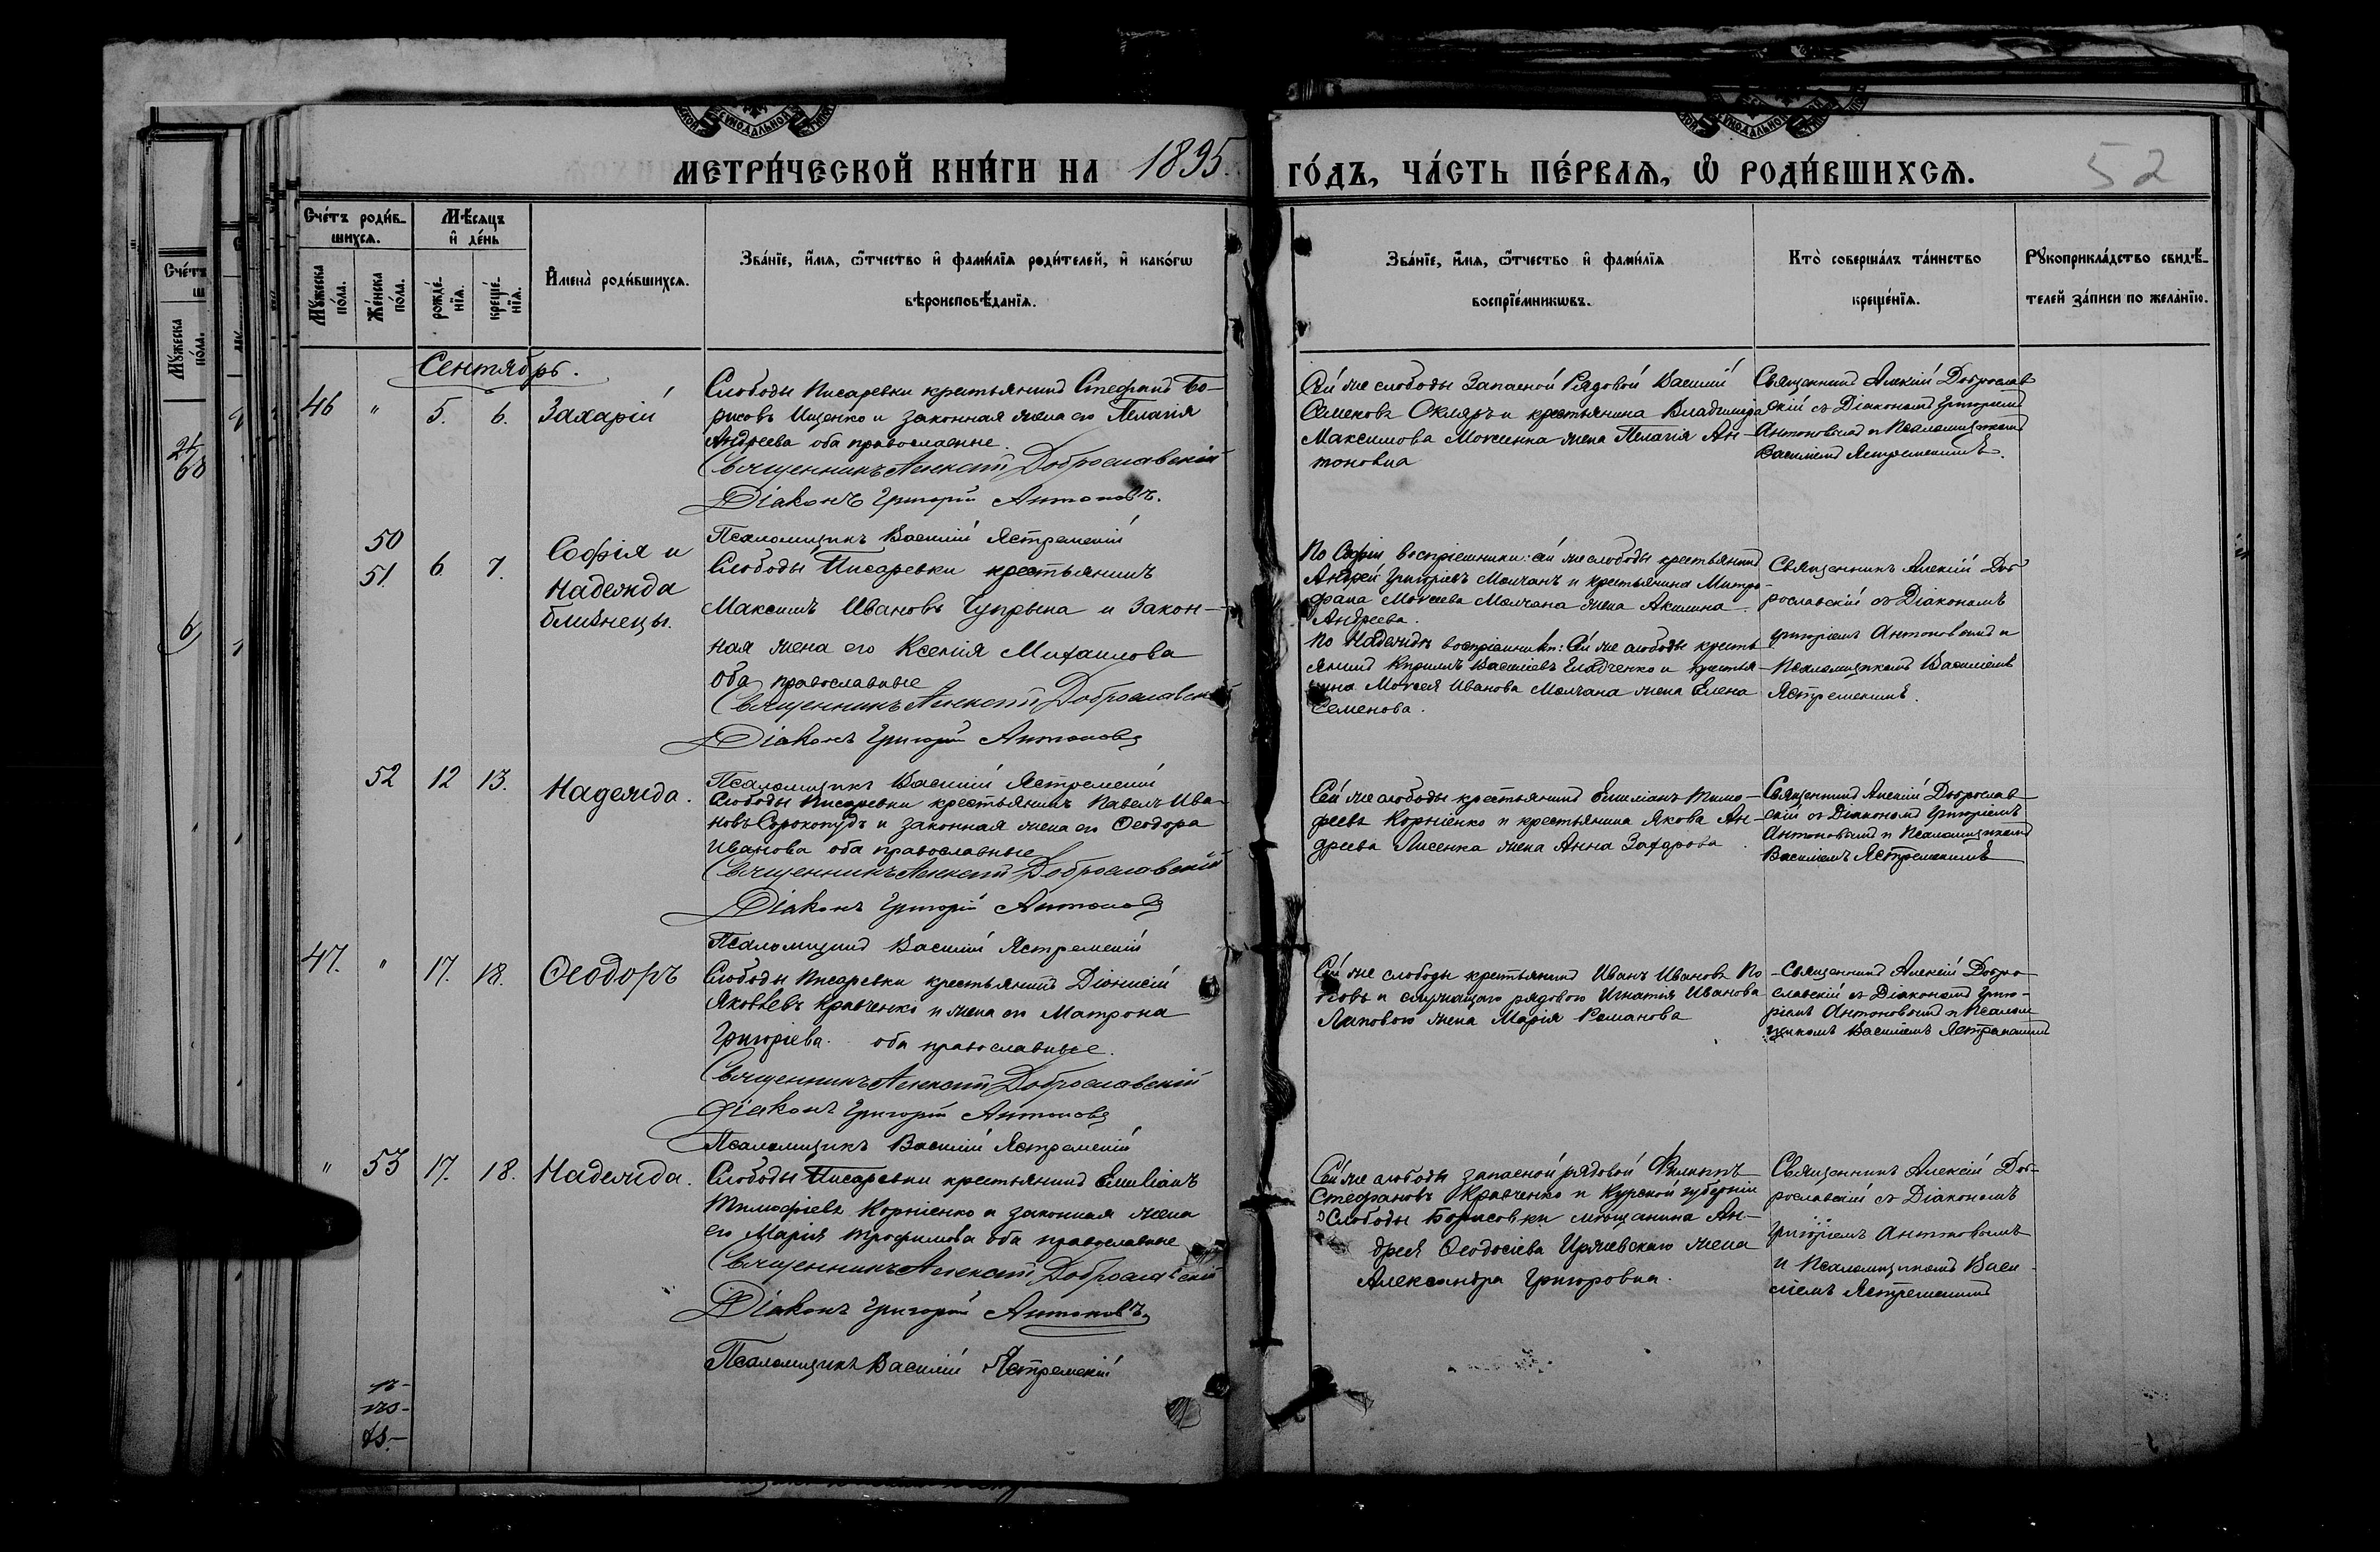 МЕТРИ́ЧЕСКОЙ КНИ́ГИ НА 1895.
ГО́ДЪ, ЧА́СТЬ ПЕ́РВАѦ, Ѽ РОДИ́ВШИХСѦ.
52
Сче́тъ роди́в-
шихсѧ.
Мѣ́сѧцъ
и҆ де́нь
Мꙋ́жеска
по́ла.
Же́нска
по́ла.
рожде́-
нїѧ.
креще́-
нїѧ.
И҆мена̀ роди́вшихсѧ.
Зва́нїе, и҆́мѧ, ѻ҆́тчество и҆ фами́лїѧ роди́телей, и҆ како́гѡ
вѣроисповѣ́данїѧ.
Зва́нїе, и҆́мѧ, ѻ҆́тчество и҆ фами́лїѧ
воспрїе́мникѡвъ.
Кто̀ соверша́лъ та́инство
креще́нїѧ.
Рꙋкоприкла́дство свидѣ́-
телей за́писи по жела́нїю.
Сентябрь.
46 " 5. 6. Захарій
Слободы Писаревки крестьянинъ Стефанъ Бо-
рисовъ Ищенко и законная жена его Пелагія
Андреева оба православные.
Священникъ Алексій Доброславскій
Діаконъ Григорій Антоновъ.
Псаломщикъ Василій Ястремскій
Сей же слободы Запасной Рядовой Василій
Семеновъ Окляръ и крестьянина Владимира
Максимова жена Пелагія Ан-
тоновна
Священникъ Алексій Доброслав
скій съ Діакономъ Григоріемъ
Антоновымъ и Псаломщикомъ
Василіемъ Ястремскимъ.
50
51. 6 7. Софія и
Надежда
близнецы.
Слободы Писаревки крестьянинъ
Максимъ Ивановъ Чупрына и закон-
ная жена его Ксенія Михаилова
оба православные
Священникъ Алексій Доброславскій
Діаконъ Григорій Антоновъ
Псаломщикъ Василій Ястремскій
По Софіи воспріемники: сей же слободы крестьянинъ
Андрей Григоріевъ Молчанъ и крестьянина Митро-
фана Моисеева Молчана жена Акилина
Андреева.
По Надеждѣ воспріемники: Сей же слободы кресть
янинъ Кириллъ Василіевъ и крестья-
нина Моисея Иванова Молчана жена Елена
Семенова.
Священникъ Алексій Доб
рославскій съ Діакономъ
Григоріемъ Антоновымъ и
Псаломщикомъ Василіемъ
Ястремскимъ.
52 12 13. Надежда.
Слободы Писаревки крестьянинъ Павелъ Ива-
новъ Сорокопудъ и законная жена его Ѳеодора
Иванова оба православные
Священникъ Алексій Доброславскій
Діаконъ Григорій Антоновъ
Псаломщикъ Василій Ястремскій
Сей же слободы крестьянинъ Емиліанъ Тимо-
феевъ Корніенко и крестьянина Якова Ан-
дреева Лисенка жена Анна Захарова
Священникъ Алексій Доброслав-
скій съ Діакономъ Григоріемъ
Антоновымъ и Псаломщикомъ
Василіемъ Ястремскимъ
47. " 17. 18. Ѳеодоръ
Слободы Писаревки крестьянинъ Діонисій
Яковлевъ Кравченко и жена его Матрона
Григоріева. оба православные.
Священникъ Алексій Доброславскій
Діаконъ Григорій Антоновъ
Псаломщикъ Василій Ястремскій
Сей же слободы крестьянинъ Иванъ Ивановъ По
повъ и служащаго рядового Игнатія Иванова
Липового жена Марія Романова
Священникъ Алексій Добро-
славскій съ Діакономъ Григо-
ріемъ Антоновымъ и Псалом
щикомъ Василіемъ Ястремскимъ
" 53 17. 18. Надежда.
Слободы Писаревки крестьянинъ Емиліанъ
Тимофіевъ Корніенко и законная жена
его Марія Трофимова оба православные
Священникъ Алексій Доброславскій
Діаконъ Григорій Антоновъ
Псаломщикъ Василій Ястремскій
Сей же слободы запасной рядовой Филиппъ
Стефановъ Кравченко и Курской губерніи
Слободы Борисовки мѣщанина Ан-
дрея Ѳеодосіева жена
Александра Григоровна.
Священникъ Алексій Доб-
рославскій съ Діакономъ
Григоріемъ Антоновымъ
и Псаломщикомъ Васи-
ліемъ Ястремскимъ